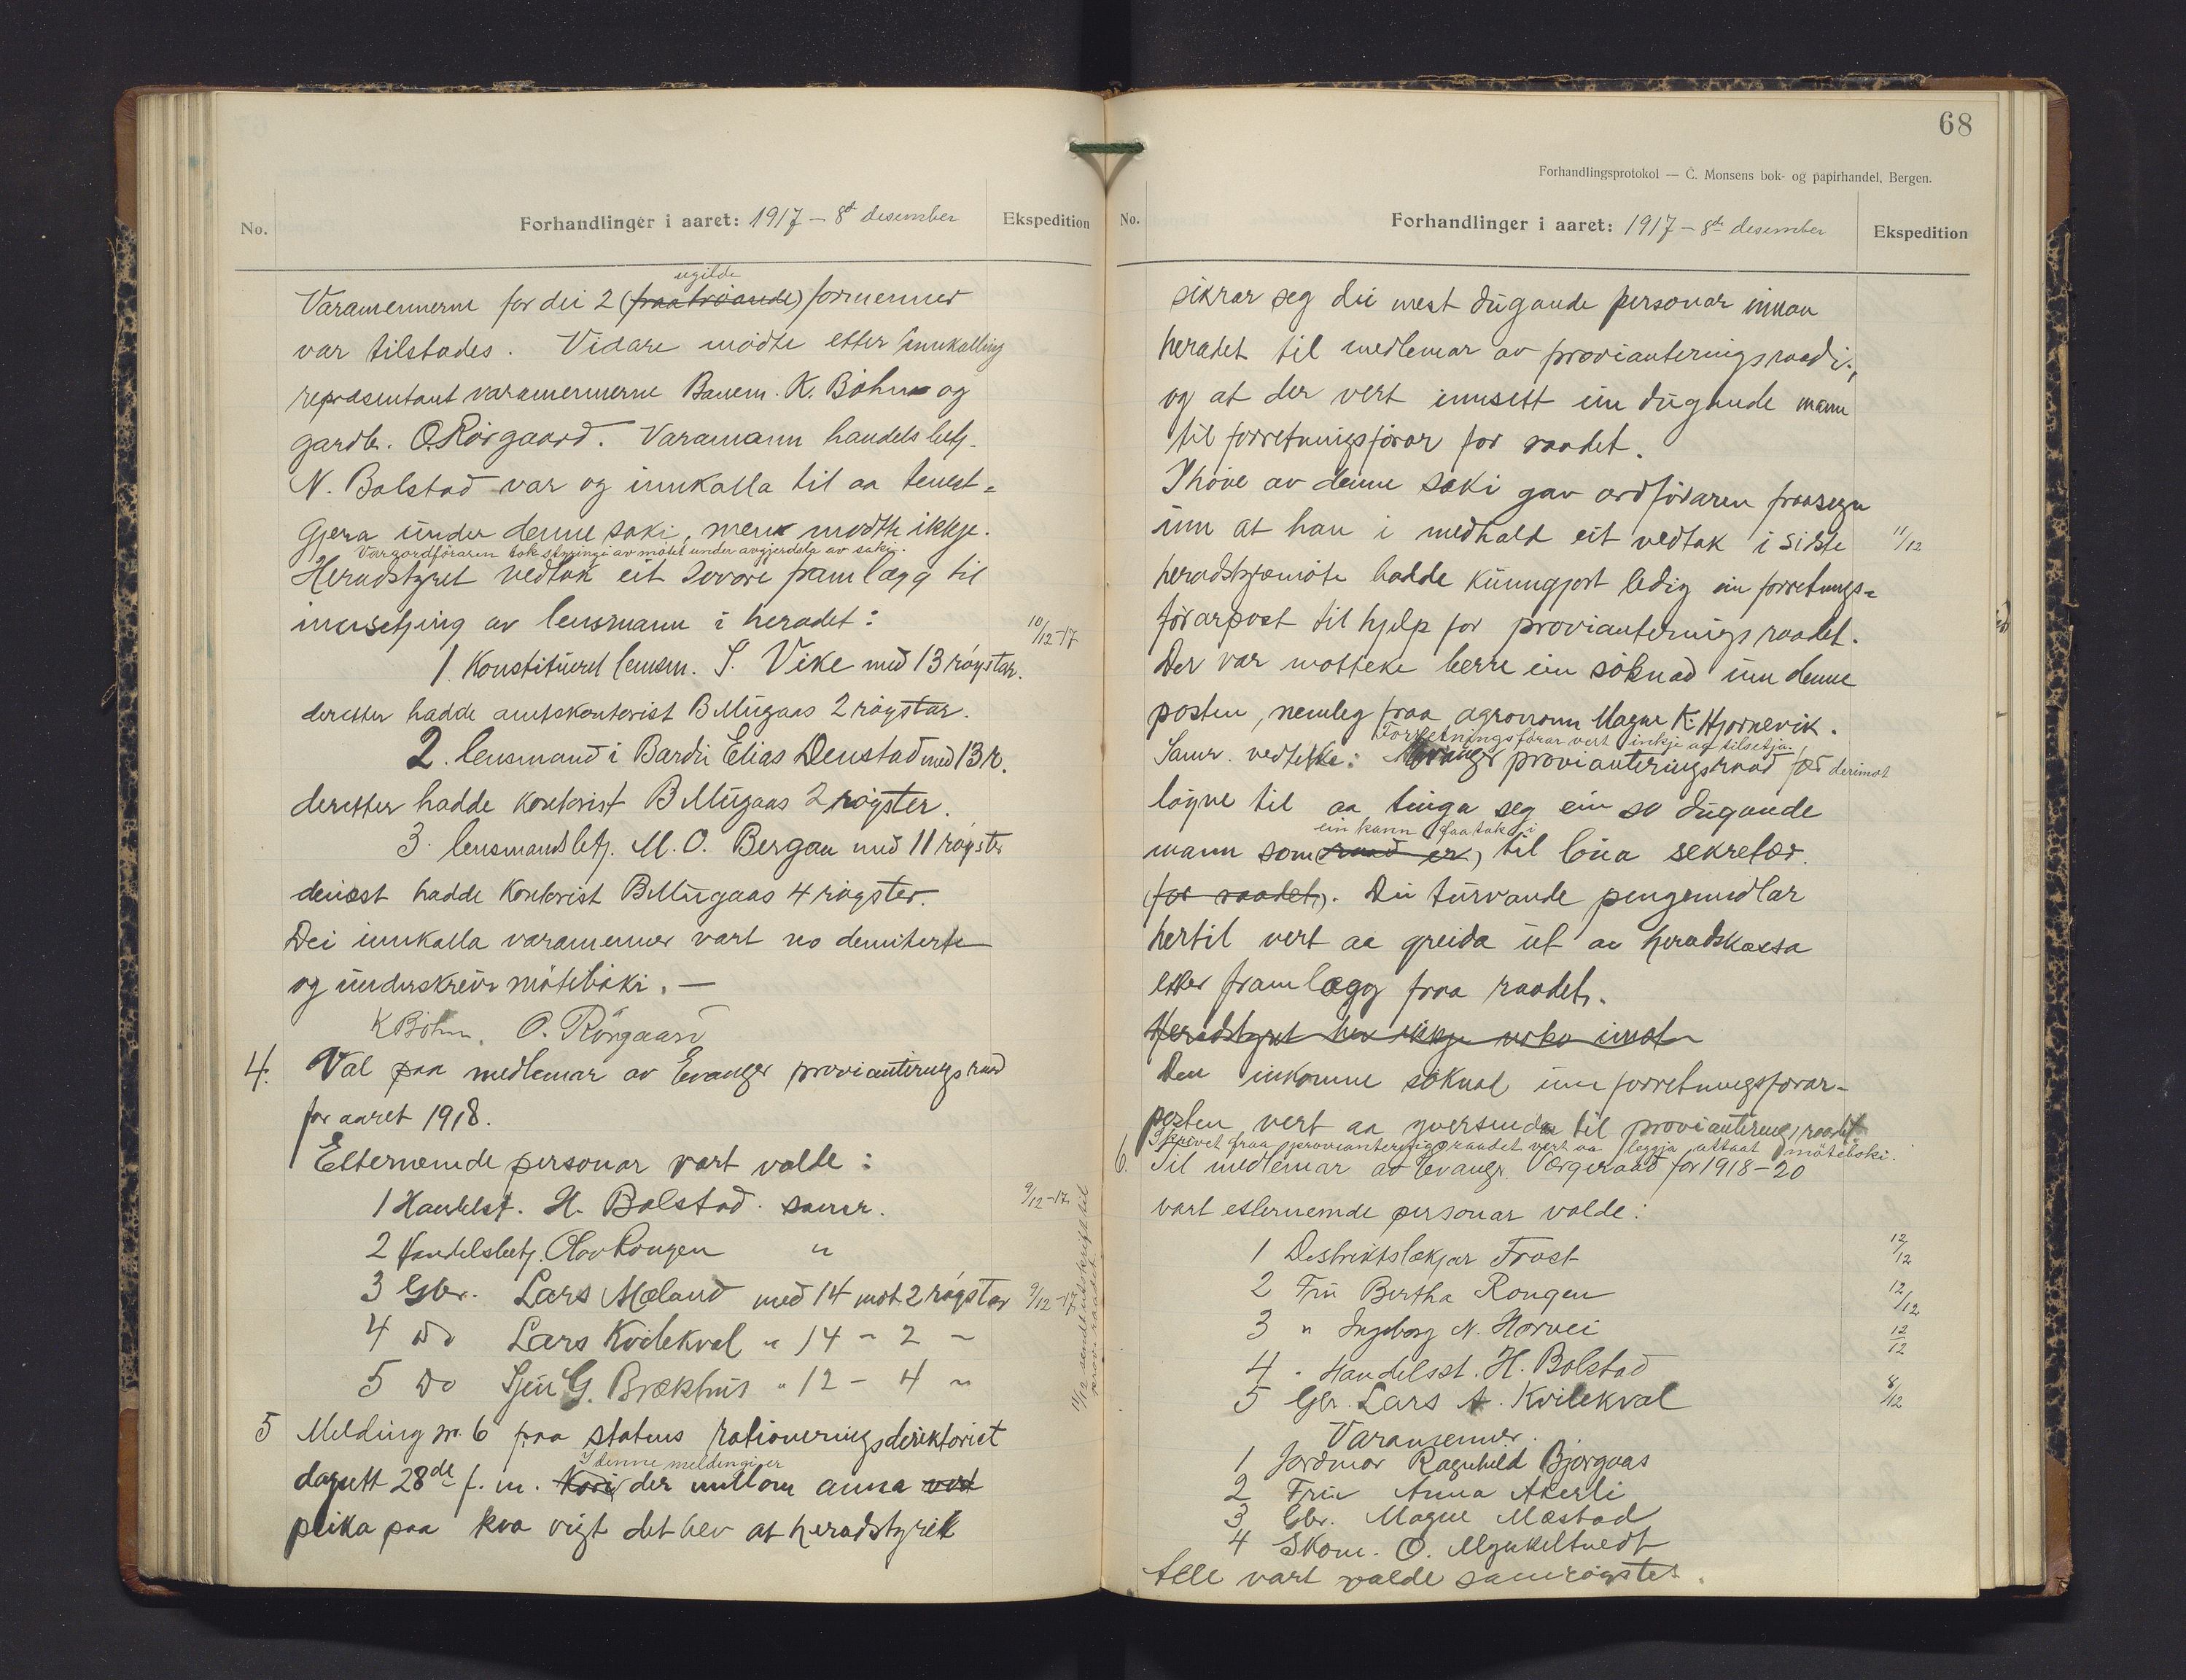 No.
Forhandlinger i aaret: 1917 – 8de desember
Ekspedition
ugilde
Varamennerne for dei 2 (fraatrœande) formenner
var tilstades. Vidare mødte etter innkalling
repræsentant varamennerne Banem. K. Bøhn og
gardb. O. Rørgaard. Varamann handelsbetj.
N. Bolstad var og innkalla til aa tenest=
gjera under denne saki, men mødte ikkje.
Varaordføraren tok styringi av møtet under avgjerdsla av saki.
Heradstyret vedtok eit sovore framlegg til
innsetjing av lensmann i heradet:
10/12-17
1. Konstituerd lensm. S. Vike med 13 røystar.
deretter hadde amtskontorist B Mugaas 2 røystar.
2. lensmand i Bardu Elias Denstad med 13 r.
deretter hadde kontorist B Mugaas 2 røyster.
3. lensmandsbetj. M. O. Bergan med 11 røyster
dernæst hadde kontorist B Mugaas 4 røyster.
Dei innkalla varamenner vart no demiterte
og underskreiv møteboki. —
K Bøhn. O. Rørgaard
4. Val paa medlemar av Evanger provianteringsraad
for aaret 1918.
Etternemde personar vart valde:
1 Handelsst. H. Bolstad samr.
9/12-17.
2 Handelsbetj. Olav Rongen "
3 Gbr. Lars Mæland med 14 mot 2 røystar
9/12-17
4 Do Lars Kvilekval " 14 - 2 -
5 Do Sjur G. Brækhus " 12 - 4 "
11/12 sendt utskrift til
prov.raadet
5 Melding nr. 6 fraa statens rationeringsdirektoriet
I denne meldingi er
dagsett 28de f. m. der millom anna vert
peika paa kva vigt det hev at heradstyret
68
Forhandlingsprotokol — C. Monsens bok- og papirhandel, Bergen.
No.
Forhandlinger i aaret: 1917 – 8de desember
Ekspedition
sikrar seg dei mest dugande personar innan
heradet til medlemar av provianteringsraadi,
og at der vert innsett ein dugande mann
til forretningsførar for raadet.
I høve av denne saki gav ordføraren fraasegn
um at han i medhald eit vedtak i siste
11/12
heradstyremøte hadde kunngjort ledig ein forretnings=
førarpost til hjelp for provianteringsraadet.
Der var motteke berre ein søknad um denne
posten, nemleg fraa agronom Magne K. Hjørnevik.
Forretningsførar vert inkje aa tilsetja.
Samr. vedteke: Evanger provianteringsraad fær derimot
løyve til aa tinga seg ein so dugande
ein kann faa tak i
mann som (raad er) til løna sekretær.
(for raadet). Dei turvande pengemidlar
hertil vert aa greida ut av heradskassa
etter framlegg fraa raadet.
Heradstyret hev ikkje noko imot
Den inkomne søknad um forretningsførar-
posten vert aa yversenda til provianteringsraadet
Skrivet fraa provianteringsraadet vert aa leggja attaat møteboki.
6. Til medlemar av Evanger Vergeraad for 1918-20
vart etternemde personar valde:
1 Destriktslækjar Frost
12/12
2 Fru Bertha Rongen
12/12
3 " Ingeborg N. Horvei
12/12
4 " Handelsst. H. Bolstad
5 Gbr. Lars A. Kvilekval
8/12
Varamenner.
1 Jordmor Ragnhild Bjørgaas
2 Fru Anna Akerli
3 Gbr. Magne Mæstad
4 Skom. O. Mynkeltvedt
Alle vart valde samrøystes.